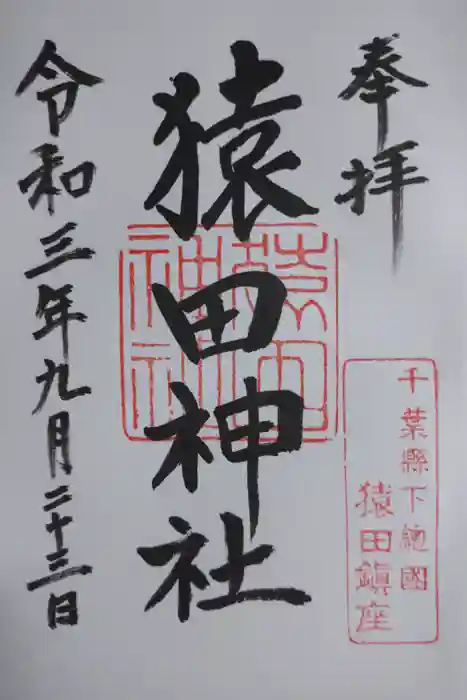 奉拝
千葉縣下總國
猿田鎮座
猿田神社
猿田神社
令和三年九月二十三日